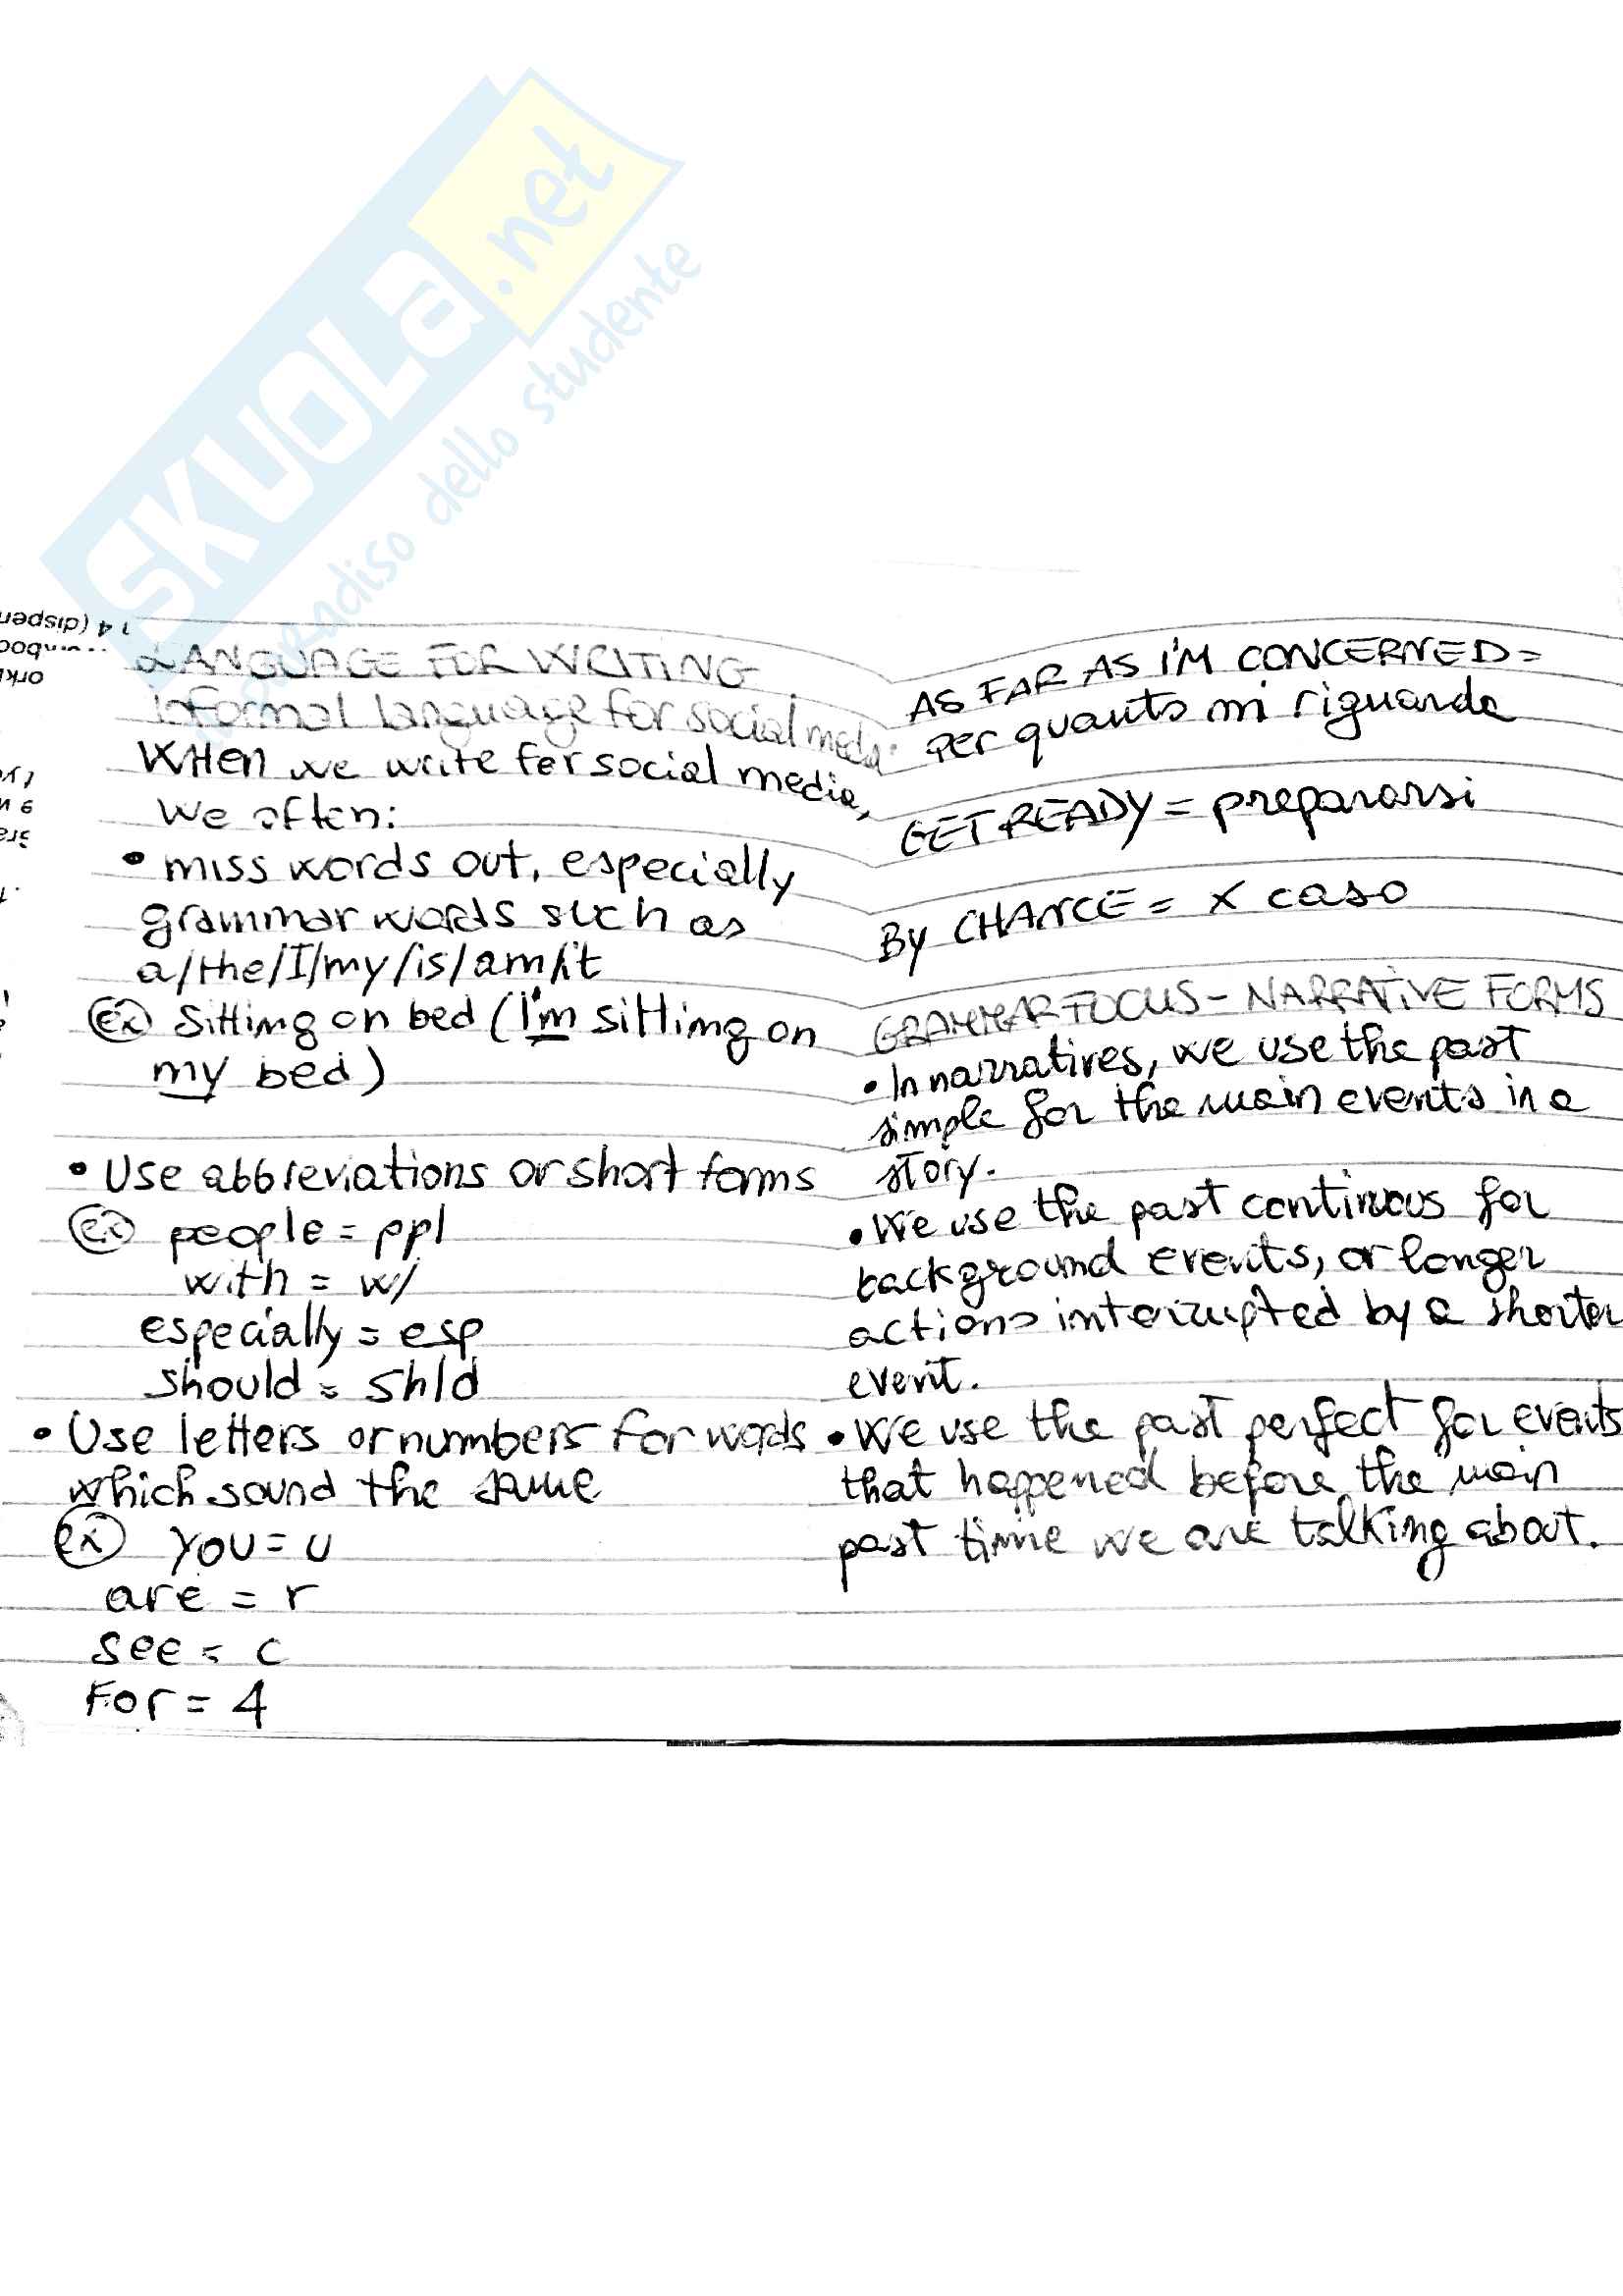 SKUOLA.net
paradiso dello studente
LANGUAGE FOR WRITING
Informal language for social media
WHen we write for social media,
we often:
• miss words out, especially
grammar words such as
a/the/I/my/is/am/it
ex Sitting on bed (I'm sitting on
my bed)
• Use abbreviations or short forms
ex people = ppl
with = w/
especially = esp
should = shld
• Use letters or numbers for words
which sound the same
ex you = u
are = r
see = c
For = 4
AS FAR AS I'M CONCERNED =
per quanto mi riguarda
GET READY = prepararsi
By CHANCE = x caso
GRAMMAR FOCUS - NARRATIVE FORMS
• In narratives, we use the past
simple for the main events in a
story.
• We use the past continuous for
background events, or longer
actions interrupted by a shorter
event.
• We use the past perfect for events
that happened before the main
past time we are talking about.